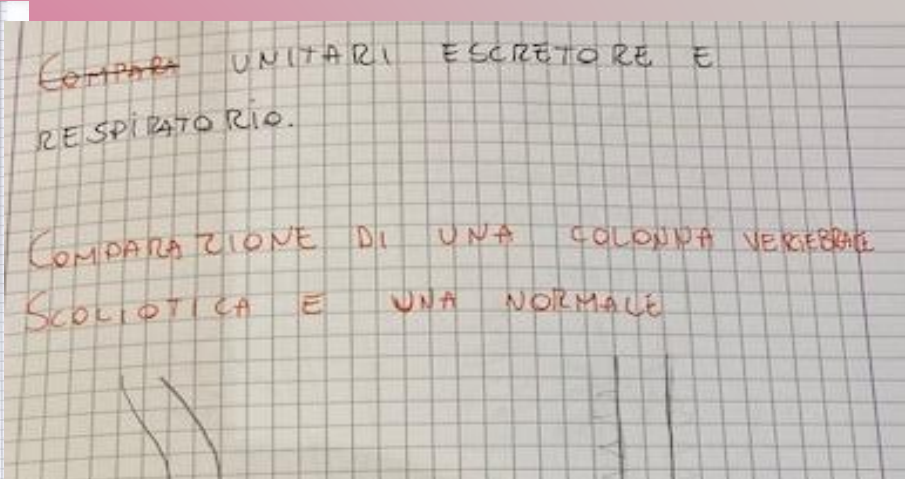 COMPARA UNITARI ESCRETORE E
RESPIRATORIO.
COMPARAZIONE DI UNA COLONNA VERTEBRALE
SCOLIOTICA E UNA NORMALE